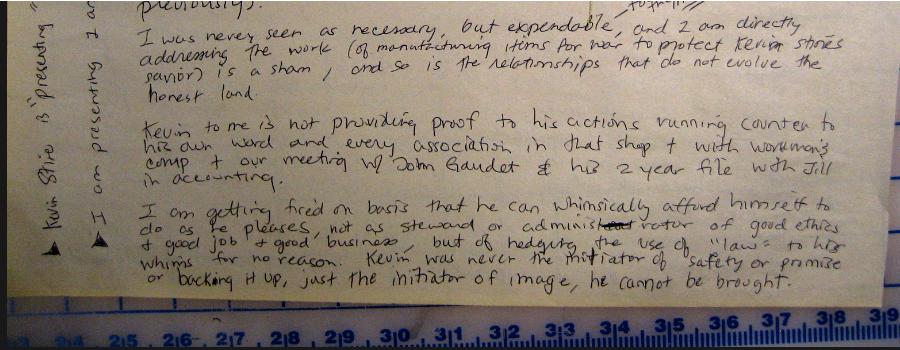 previously).
I was never seen as necessary, but expendable, and I am directly
addressing the work (of manufacturing items for war to protect Kevin Shires
savior) is a sham, and so is the relationships that do not evolve the
honest land.
Kevin to me is not providing proof to his actions running counter to
his own word and every association in that shop + with workman's
comp + our meeting w/ John Gaudet & his 2 year file with Jill
in accounting.
I am getting fired on basis that he can whimsically afford himself to
do as he pleases, not as steward or administrator of good ethics
+ good job + good business, but of hedging the use of "law" to his
whims for no reason. Kevin was never the initiator of safety or promise
or backing it up, just the initiator of image, he cannot be brought.
Kevin Shire is "presenting"
I am presenting I
24 25 26 27 28 29 30 31 32 33 34 35 36 37 38 39